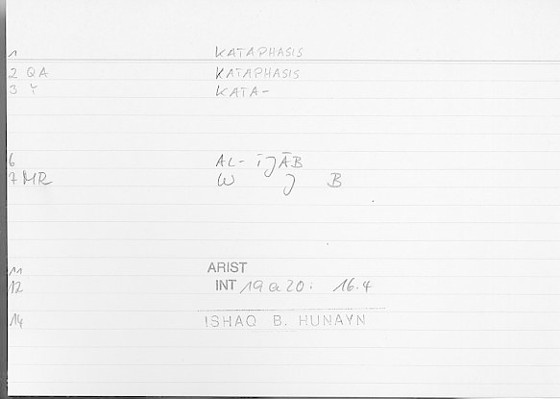 1 KATAPHASIS
2 QA KATAPHASIS
3 Y KATA-
6 AL-ĪJĀB
7 MR W J B
11 ARIST
12 INT 19 a 20 : 16.4
14 ISHAQ B. HUNAYN